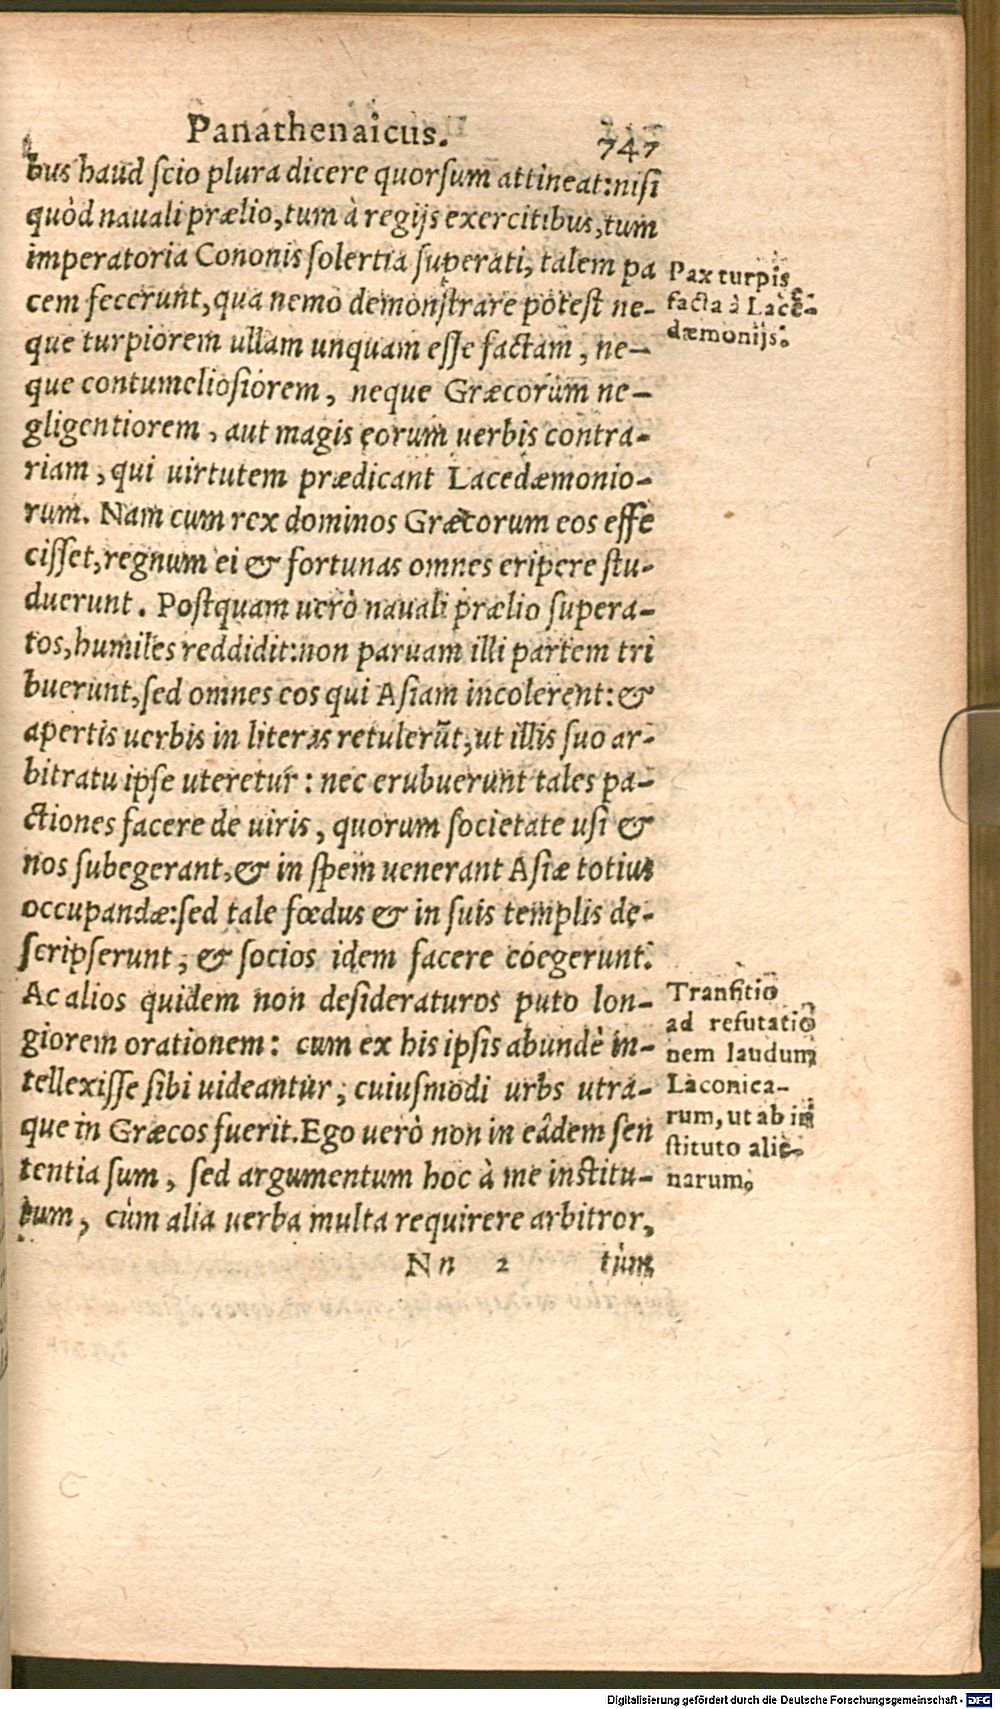 Panathenaicus. 747
bus haud scio plura dicere quorsum attineat: nisi
quòd nauali prælio, tum à regijs exercitibus, tum
imperatoria Cononis solertia superati, talem pa
cem fecerunt, qua nemo demonstrare potest ne-
que turpiorem ullam unquam esse factam, ne-
que contumeliosiorem, neque Græcorum ne-
gligentiorem, aut magis eorum uerbis contra-
riam, qui uirtutem prædicant Lacedæmonio-
rum. Nam cum rex dominos Græcorum eos effe
cisset, regnum ei & fortunas omnes eripere stu-
duerunt. Postquam uerò nauali prælio supera-
tos, humiles reddidit: non paruam illi partem tri
buerunt, sed omnes eos qui Asiam incolerent: &
apertis uerbis in literas retulerũt, ut illis suo ar-
bitratu ipse uteretur: nec erubuerunt tales pa-
ctiones facere de uiris, quorum societate usi &
nos subegerant, & in spem uenerant Asiæ totius
occupandæ: sed tale fœdus & in suis templis de-
scripserunt, & socios idem facere coegerunt.
Ac alios quidem non desideraturos puto lon-
giorem orationem: cum ex his ipsis abundè in-
tellexisse sibi uideantur, cuiusmodi urbs utra-
que in Græcos fuerit. Ego uerò non in eâdem sen
tentia sum, sed argumentum hoc à me institu-
tum, cùm alia uerba multa requirere arbitror,
Nn 2 tùm
Pax turpis
facta à Lace-
dæmonijs.
Transitio
ad refutatio
nem laudum
Laconica-
rum, ut ab in
stituto alie-
narum.
C
Digitalisierung gefördert durch die Deutsche Forschungsgemeinschaft - DFG